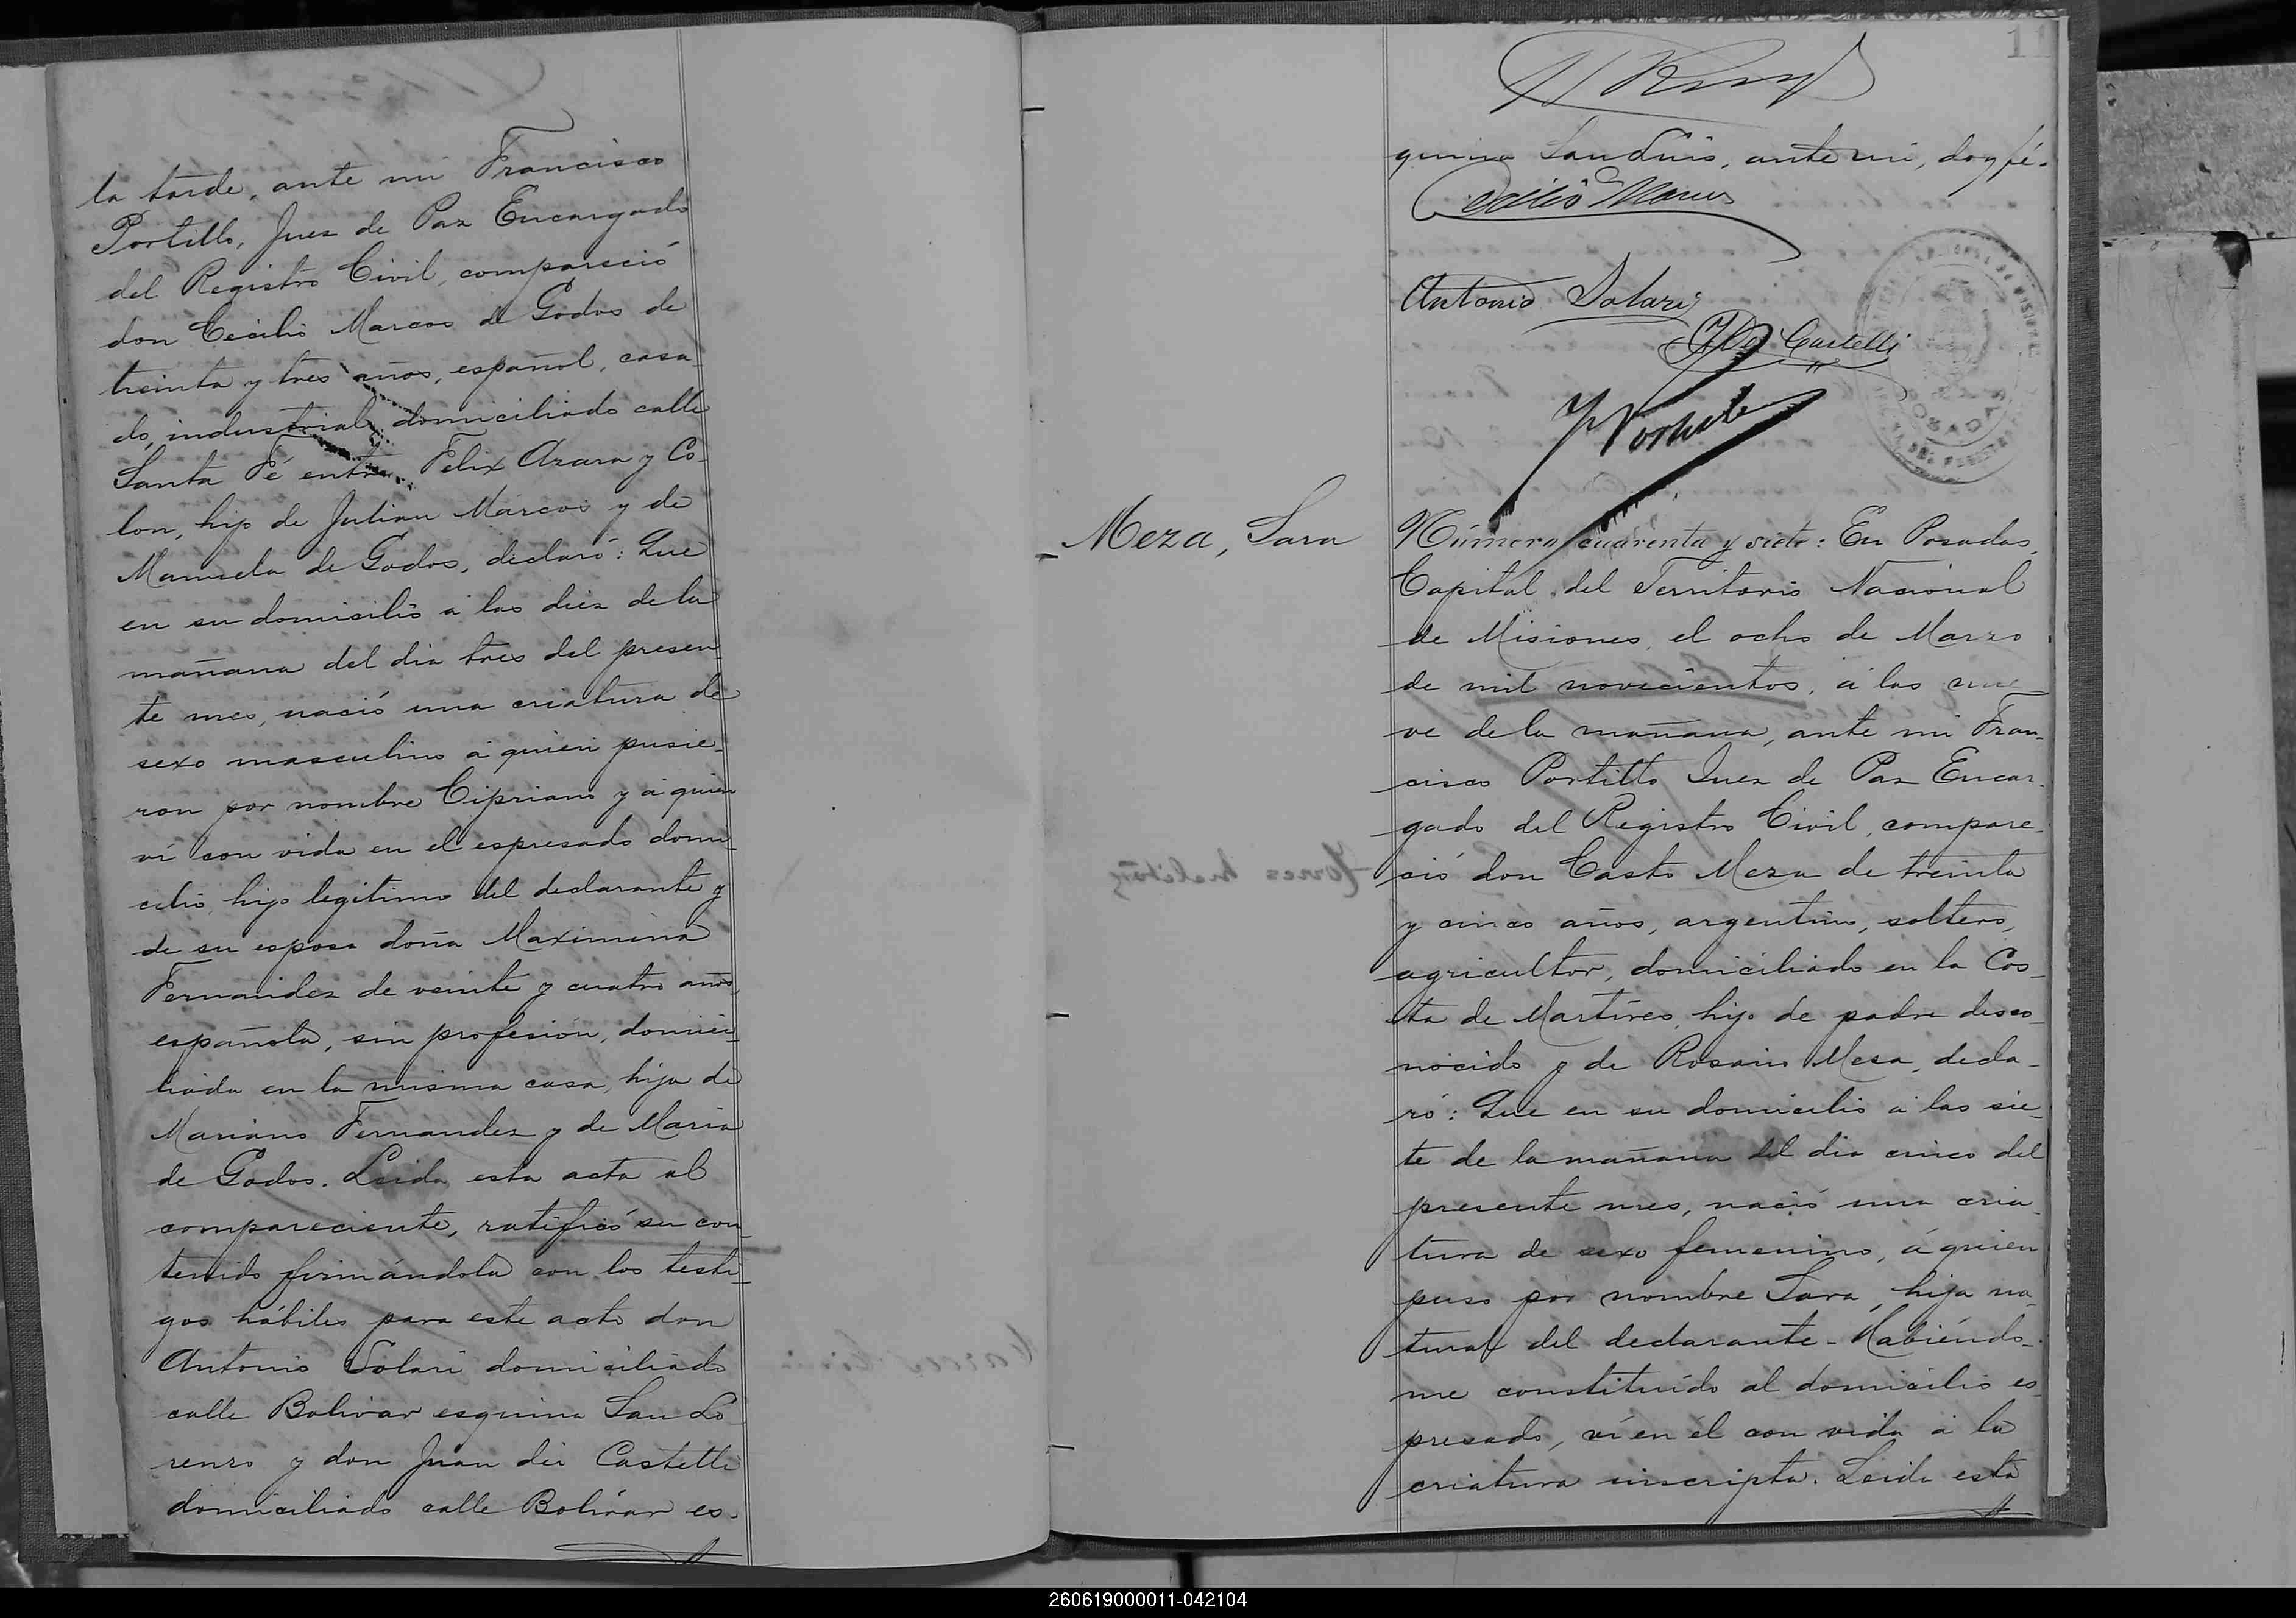 la tarde, ante mi Francisco
Portillo, Juez de Paz Encargado
del Registro Civil, compareció
don Cecilio Marcos de Godos de
treinta y tres años, español, casa-
do, industrial, domiciliado calle
Santa Fé entre Felix Azara y Co-
lon, hijo de Julian Marcos y de
Manuela de Godos, declaró: Que
en su domicilio á las diez de la
mañana del dia tres del presen-
te mes, nació una criatura de
sexo masculino á quien pusie-
ron por nombre Cipriano y á quien
ví con vida en el espresado domi-
cilio, hijo legítimo del declarante y
de su esposa doña Maximina
Fernandez de veinte y cuatro años,
española, sin profesión, domici-
liada en la misma casa, hija de
Mariano Fernandez y de Maria
de Godos. Leida esta acta al
compareciente, ratificó su con-
tenido firmándola con los testi-
gos hábiles para este acto don
Antonio Solari domiciliado
calle Bolivar esquina San Lo
renzo y don Juan dei Castelli
domiciliado calle Bolívar es-
quina San Luis, ante mi, doy fé.
Cecilio Marcos
Antonio Solari
Castelli
Portillo
POSADAS
Meza, Sara
Número cuarenta y siete: En Posadas,
Capital del Territorio Nacional
de Misiones, el ocho de Marzo
de mil novecientos, á las nue
ve de la mañana, ante mi Fran-
cisco Portillo Juez de Paz Encar-
gado del Registro Civil, compare-
ció don Casto Meza de treinta
y cinco años, argentino, soltero,
agricultor, domiciliado en la Cos-
ta de Martires, hijo de padre desco-
nocido y de Rosario Mesa, decla-
ró: Que en su domicilio á las sie-
te de la mañana del dia cinco del
presente mes, nació una cria-
tura de sexo femenino, á quien
puso por nombre Sara, hija na-
tural del declarante - Habiéndo-
me constituído al domicilio es-
presado, ví en él con vida á la
criatura inscripta. Leida esta
260619000011-042104